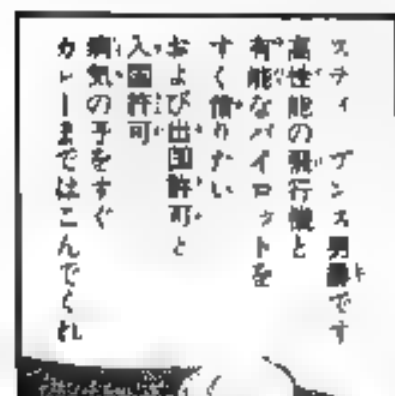 スティブンス男爵です
高性能の飛行機と
有能なパイロットを
すぐ借りたい
および出国許可と
入国許可
病気の子をすぐ
カレーまではこんでくれ